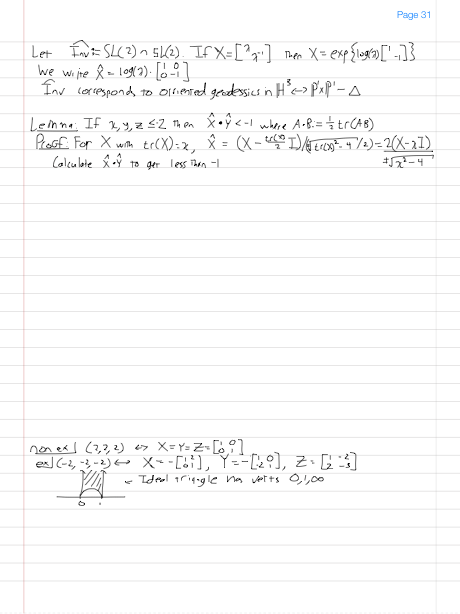 Page 31
Let Înv := SL(2) ∩ sl(2). If X = [λ λ⁻¹] then X = exp{log(λ)[1 -1]}
We write X̂ = log(λ)·[1 0 0 -1]
Înv corresponds to oriented geodessics in ℍ³ ↔ ℙ¹×ℙ¹ - Δ
Lemma: If x, y, z ≤ -2 then X̂•Ŷ < -1 where A•B := ½ tr(AB)
Proof: For X with tr(X) = x, X̂ = (X - tr(X)/2 I)/(√(tr(X)² - 4)/2) = 2(X - xI)/±√(x² - 4)
Calculate X̂•Ŷ to get less than -1
non ex] (2, 2, 2) ↔ X = Y = Z = [1 0 0 1]
ex] (-2, -2, -2) ↔ X = -[1 2 0 1], Y = -[1 0 -2 1], Z = [1 -2 2 -3]
← Ideal triangle has verts 0, 1, ∞
0 1